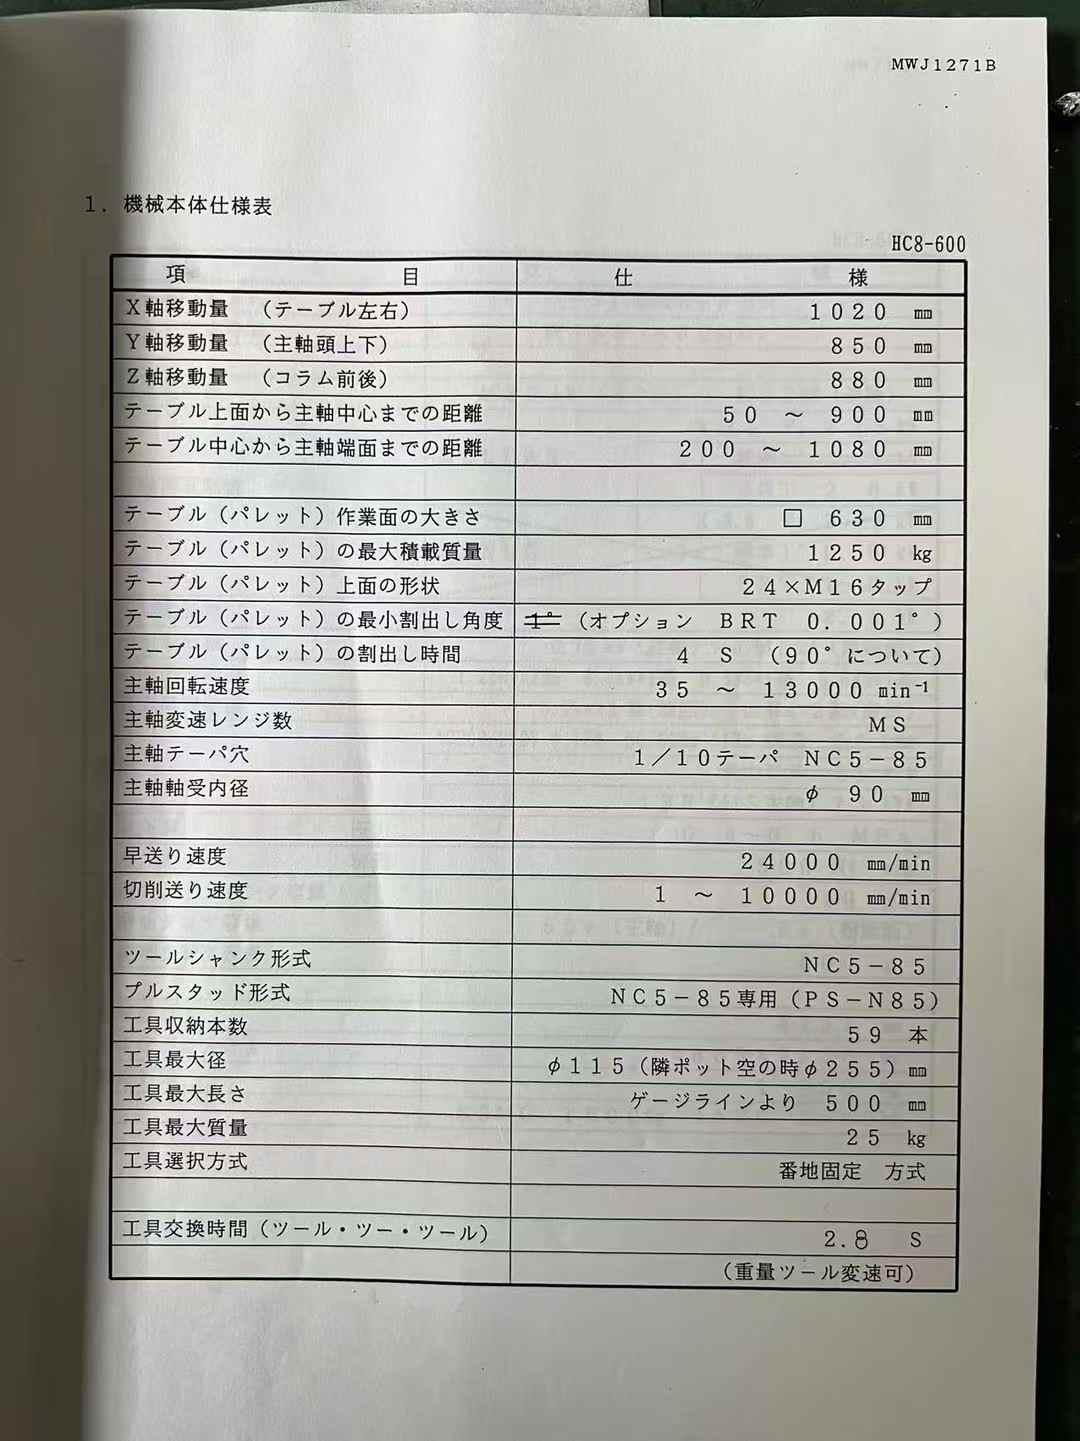 MWJ1271B
1. 機械本体仕様表
HC8-600
項 目 仕 様
X軸移動量 (テーブル左右) 1020 mm
Y軸移動量 (主軸頭上下) 850 mm
Z軸移動量 (コラム前後) 880 mm
テーブル上面から主軸中心までの距離 50 ~ 900 mm
テーブル中心から主軸端面までの距離 200 ~ 1080 mm
テーブル(パレット)作業面の大きさ □ 630 mm
テーブル(パレット)の最大積載質量 1250 kg
テーブル(パレット)上面の形状 24×M16タップ
テーブル(パレット)の最小割出し角度 1° (オプション BRT 0.001°)
テーブル(パレット)の割出し時間 4 S (90°について)
主軸回転速度 35 ~ 13000 min⁻¹
主軸変速レンジ数 MS
主軸テーパ穴 1/10テーパ NC5-85
主軸軸受内径 φ 90 mm
早送り速度 24000 mm/min
切削送り速度 1 ~ 10000 mm/min
ツールシャンク形式 NC5-85
プルスタッド形式 NC5-85専用(PS-N85)
工具収納本数 59 本
工具最大径 φ115(隣ポット空の時φ255)mm
工具最大長さ ゲージラインより 500 mm
工具最大質量 25 kg
工具選択方式 番地固定 方式
工具交換時間(ツール・ツー・ツール) 2.8 S
(重量ツール変速可)